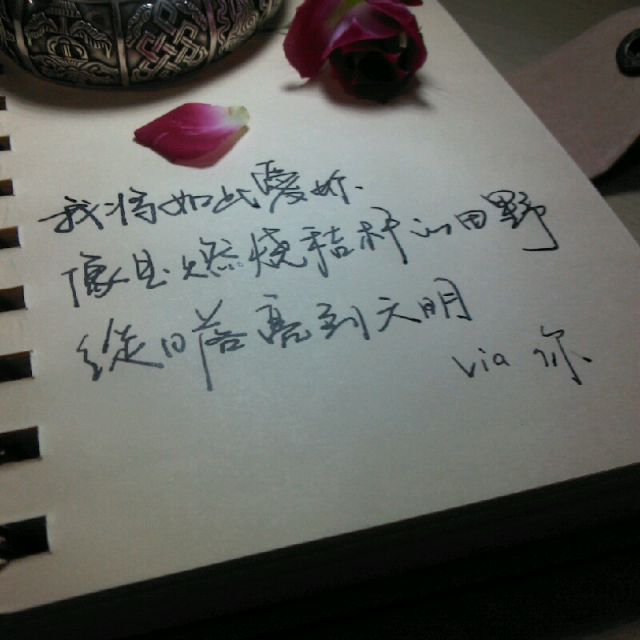 我将如此爱你.
像是燃烧秸秆的田野
从日暮亮到天明
via 你.